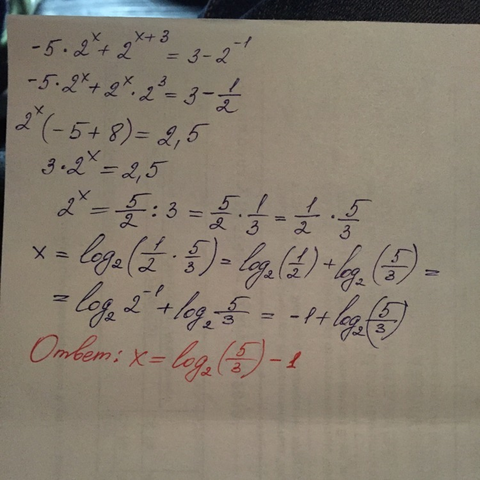 -5·2^x + 2^{x+3} = 3-2^{-1}
-5·2^x + 2^x·2^3 = 3 - \frac{1}{2}
2^x(-5+8) = 2,5
3·2^x = 2,5
2^x = \frac{5}{2} : 3 = \frac{5}{2} · \frac{1}{3} = \frac{1}{2} · \frac{5}{3}
x = log_2(\frac{1}{2} · \frac{5}{3}) = log_2(\frac{1}{2}) + log_2(\frac{5}{3}) =
= log_2 2^{-1} + log_2 \frac{5}{3} = -1 + log_2(\frac{5}{3})
Ответ: x = log_2(\frac{5}{3}) - 1